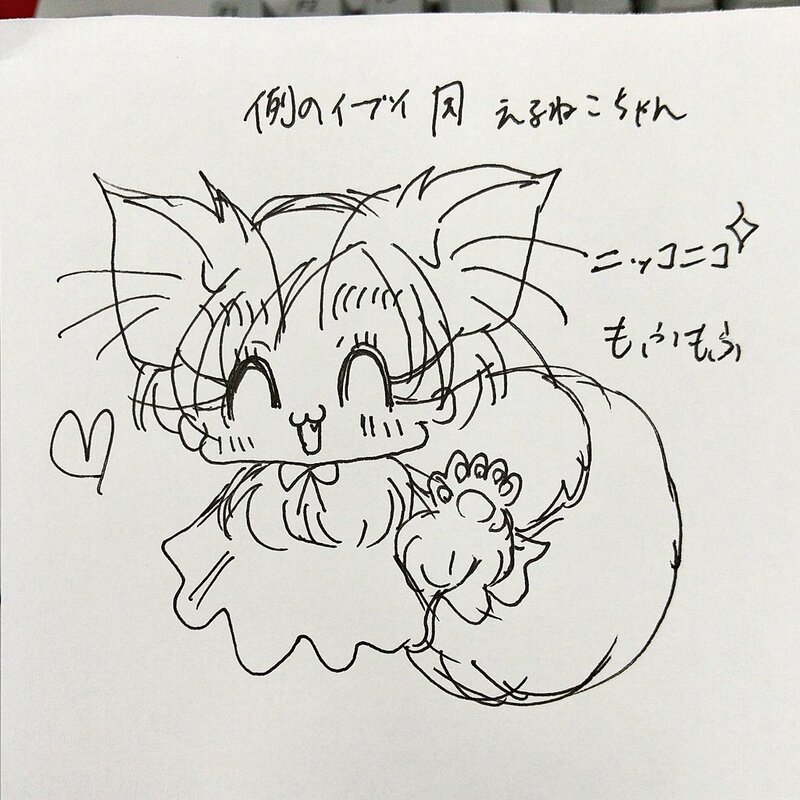 例のイーブイ 月 えるねこちゃん
ニッコニコ
もふもふ